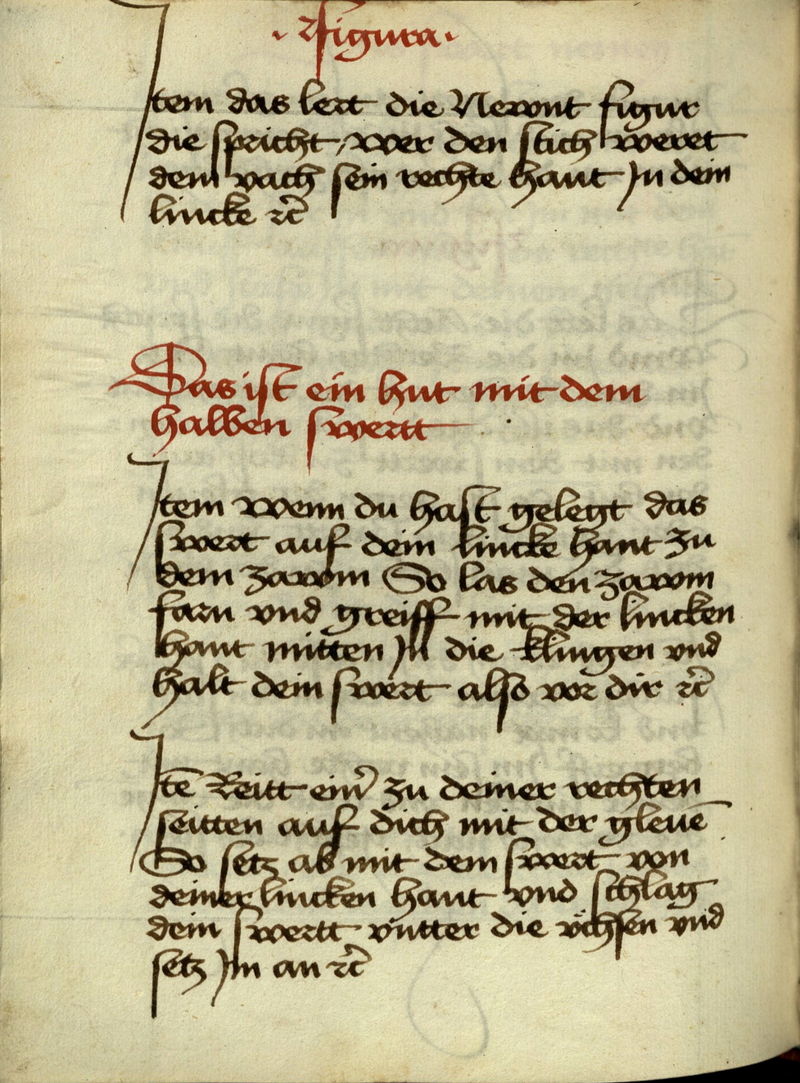 · Figura ·
Item das lert die Newnt figur
die spricht / wer den stich weret
dem vach sein rechte hant In dein
lincke rc̄
Das ist ein hut mit dem
halben swertt
Item wenn du hast gelegt das
swert auf dein lincke hant zu
dem zawm So las den zawm
farn vnd greiff mit der lincken
hant mitten In die klingen vnd
halt dein swert also vor dir rc̄
Itē Reitt einer zu deiner rechten
seitten auf dich mit der glevē
So setz ab mit dem swert von
deiner lincken hant vnd schlag
dein swertt vntter die vchsen vnd
setz Im an rc̄